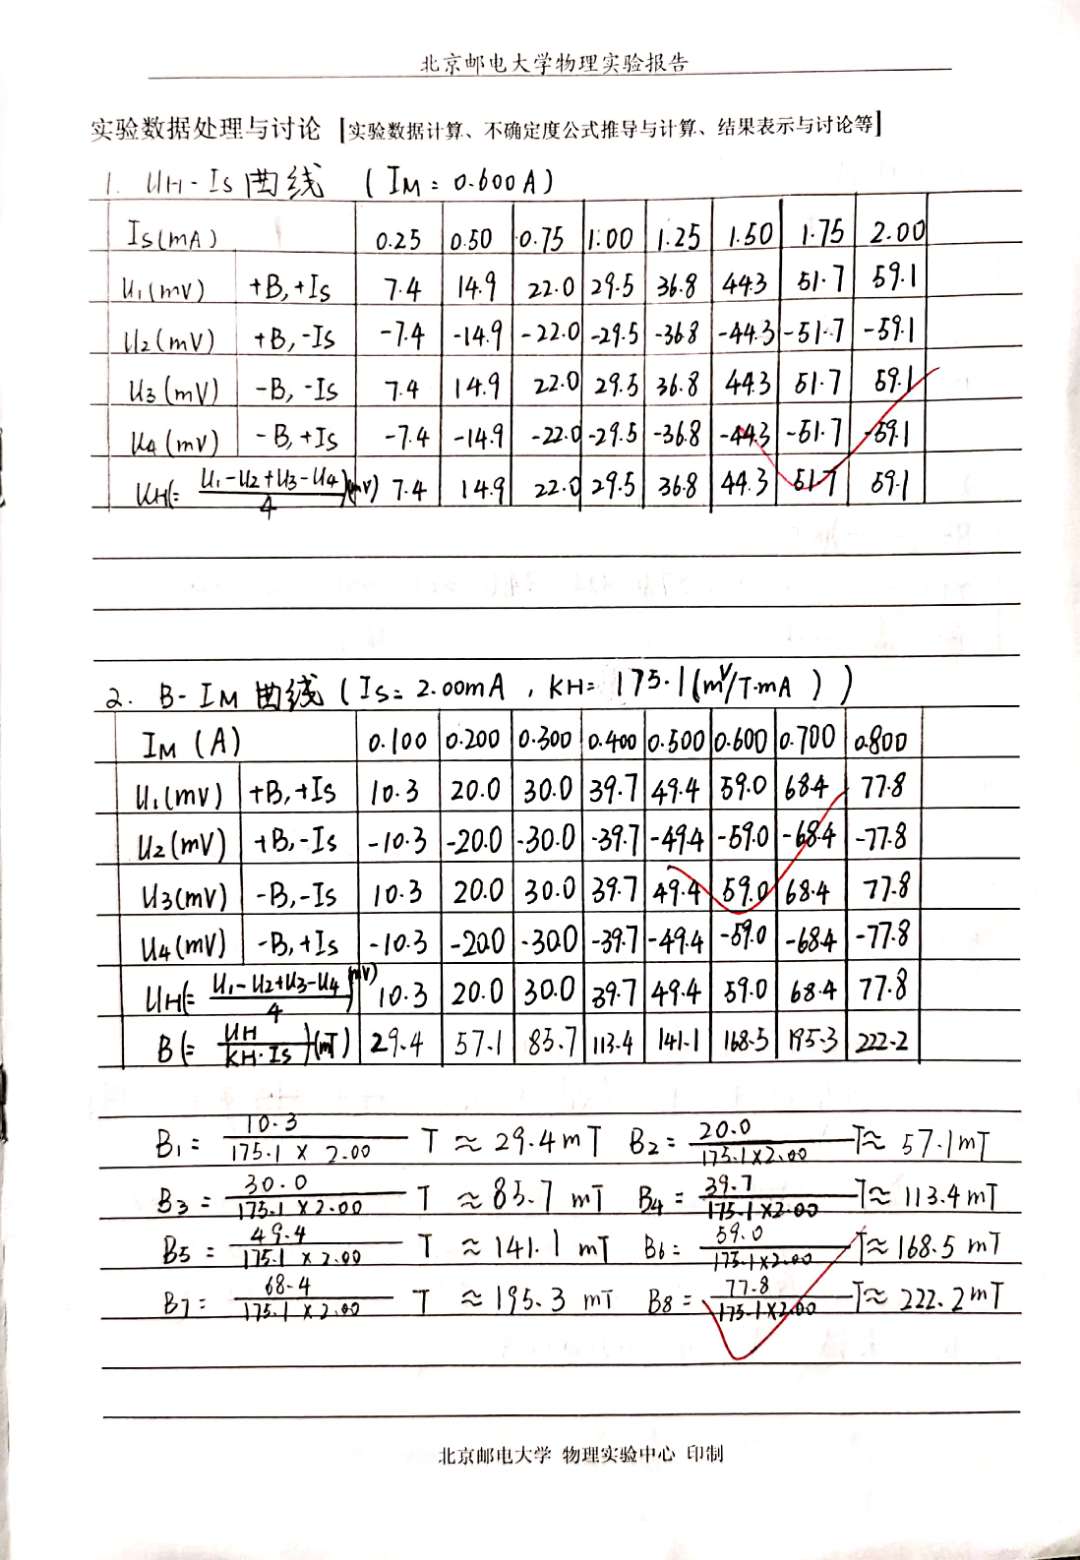 北京邮电大学物理实验报告
实验数据处理与讨论 [实验数据计算、不确定度公式推导与计算、结果表示与讨论等]
1. UH-Is 曲线 (IM = 0.600A)
Is(mA) 0.25 0.50 0.75 1.00 1.25 1.50 1.75 2.00
U1(mV) +B,+Is 7.4 14.9 22.0 29.5 36.8 44.3 51.7 59.1
U2(mV) +B,-Is -7.4 -14.9 -22.0 -29.5 -36.8 -44.3 -51.7 -59.1
U3(mV) -B,-Is 7.4 14.9 22.0 29.5 36.8 44.3 51.7 59.1
U4(mV) -B,+Is -7.4 -14.9 -22.0 -29.5 -36.8 -44.3 -51.7 -59.1
UH(= (U1-U2+U3-U4)/4)(mV) 7.4 14.9 22.0 29.5 36.8 44.3 51.7 59.1
2. B-IM 曲线 (Is = 2.00mA , KH = 175.1(mV/T·mA))
IM (A) 0.100 0.200 0.300 0.400 0.500 0.600 0.700 0.800
U1(mV) +B,+Is 10.3 20.0 30.0 39.7 49.4 59.0 68.4 77.8
U2(mV) +B,-Is -10.3 -20.0 -30.0 -39.7 -49.4 -59.0 -68.4 -77.8
U3(mV) -B,-Is 10.3 20.0 30.0 39.7 49.4 59.0 68.4 77.8
U4(mV) -B,+Is -10.3 -20.0 -30.0 -39.7 -49.4 -59.0 -68.4 -77.8
UH(= (U1-U2+U3-U4)/4)(mV) 10.3 20.0 30.0 39.7 49.4 59.0 68.4 77.8
B(= UH/(KH·Is))(mT) 29.4 57.1 85.7 113.4 141.1 168.5 195.3 222.2
B1 = 10.3/(175.1×2.00) T ≈ 29.4mT B2 = 20.0/(175.1×2.00) T ≈ 57.1mT
B3 = 30.0/(175.1×2.00) T ≈ 85.7 mT B4 = 39.7/(175.1×2.00) T ≈ 113.4mT
B5 = 49.4/(175.1×2.00) T ≈ 141.1 mT B6 = 59.0/(175.1×2.00) T ≈ 168.5 mT
B7 = 68.4/(175.1×2.00) T ≈ 195.3 mT B8 = 77.8/(175.1×2.00) T ≈ 222.2mT
北京邮电大学 物理实验中心 印制